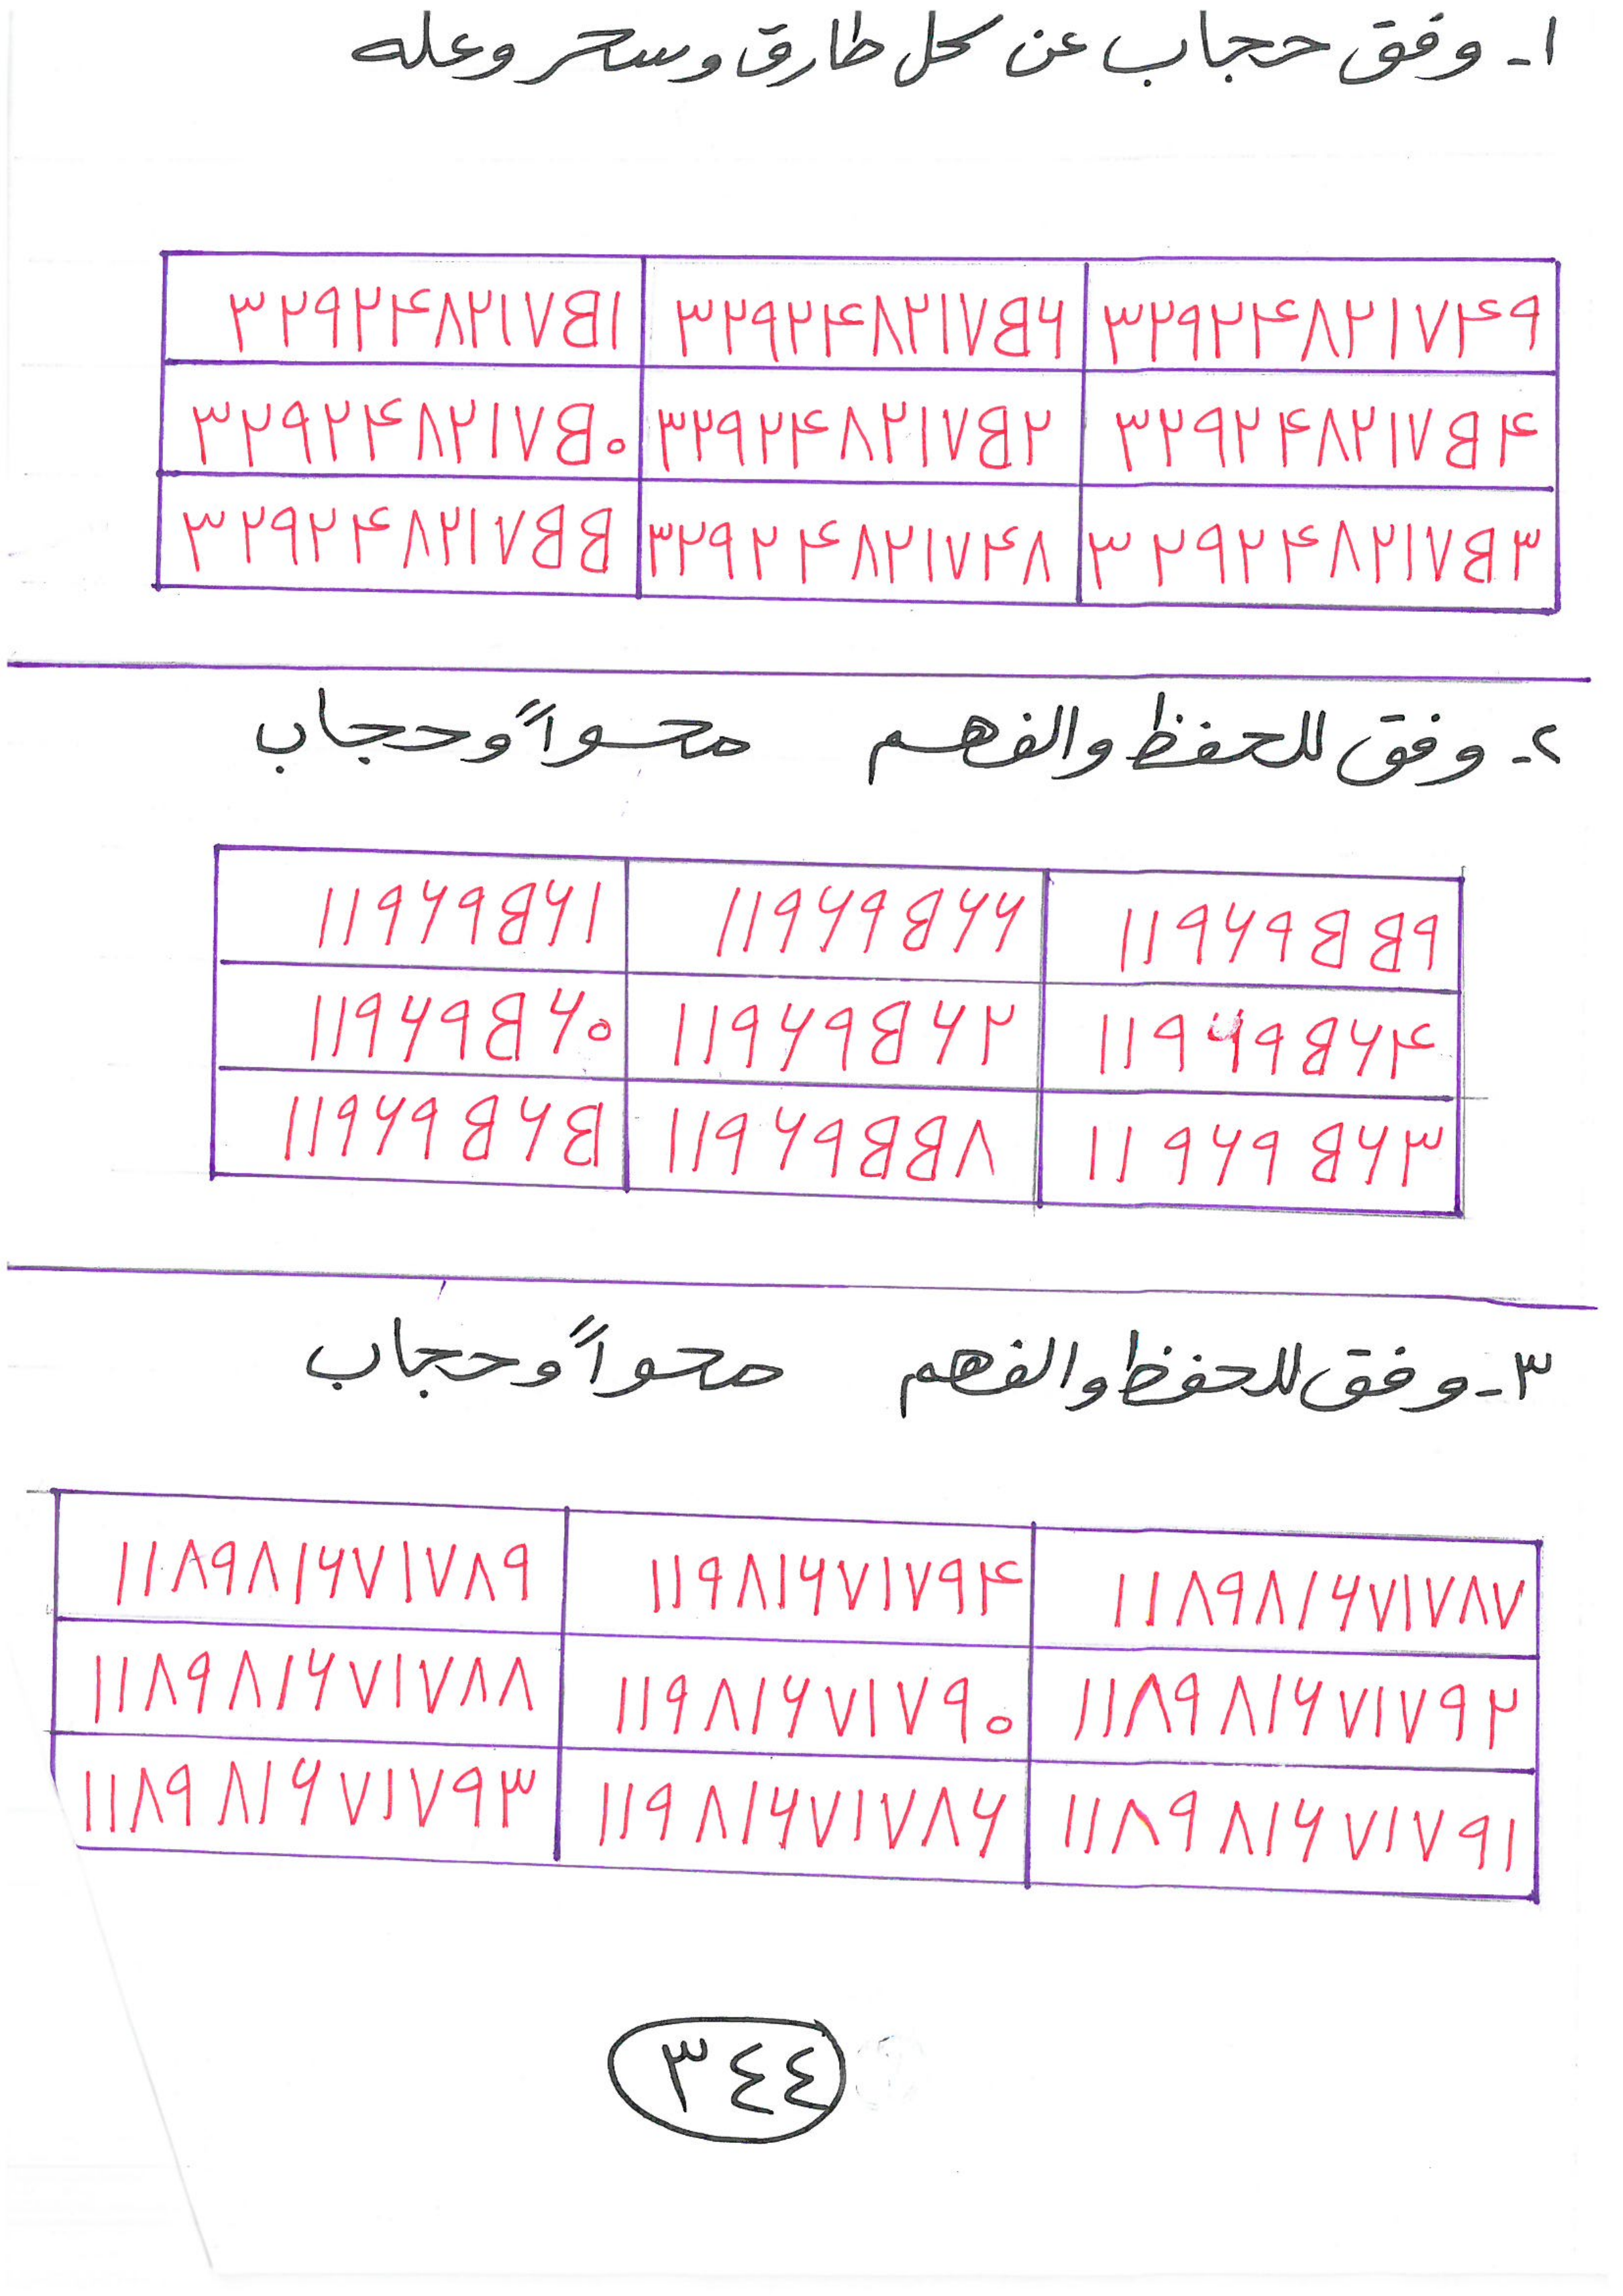 ١ـ وفق حجاب عن كل طارق وسحر وعله
٣٢٩٢٤٨٢١٧٤٩ ٣٢٩٢٤٨٢١٧٥٦ ٣٢٩٢٤٨٢١٧٥١
٣٢٩٢٤٨٢١٧٥٤ ٣٢٩٢٤٨٢١٧٥٢ ٣٢٩٢٤٨٢١٧٥٠
٣٢٩٢٤٨٢١٧٥٣ ٣٢٩٢٤٨٢١٧٤٨ ٣٢٩٢٤٨٢١٧٥٥
٢ـ وفق للحفظ والفهم محواً وحجاب
١١٩٦٩٥٥٩ ١١٩٦٩٥٦٦ ١١٩٦٩٥٦١
١١٩٦٩٥٦٤ ١١٩٦٩٥٦٢ ١١٩٦٩٥٦٠
١١٩٦٩٥٦٣ ١١٩٦٩٥٥٨ ١١٩٦٩٥٦٥
٣ـ وفق للحفظ والفهم محواً وحجاب
١١٨٩٨١٦٧١٧٨٧ ١١٩٨١٦٧١٧٩٤ ١١٨٩٨١٦٧١٧٨٩
١١٨٩٨١٦٧١٧٩٢ ١١٩٨١٦٧١٧٩٠ ١١٨٩٨١٦٧١٧٨٨
١١٨٩٨١٦٧١٧٩١ ١١٩٨١٦٧١٧٨٦ ١١٨٩٨١٦٧١٧٩٣
٣٤٤